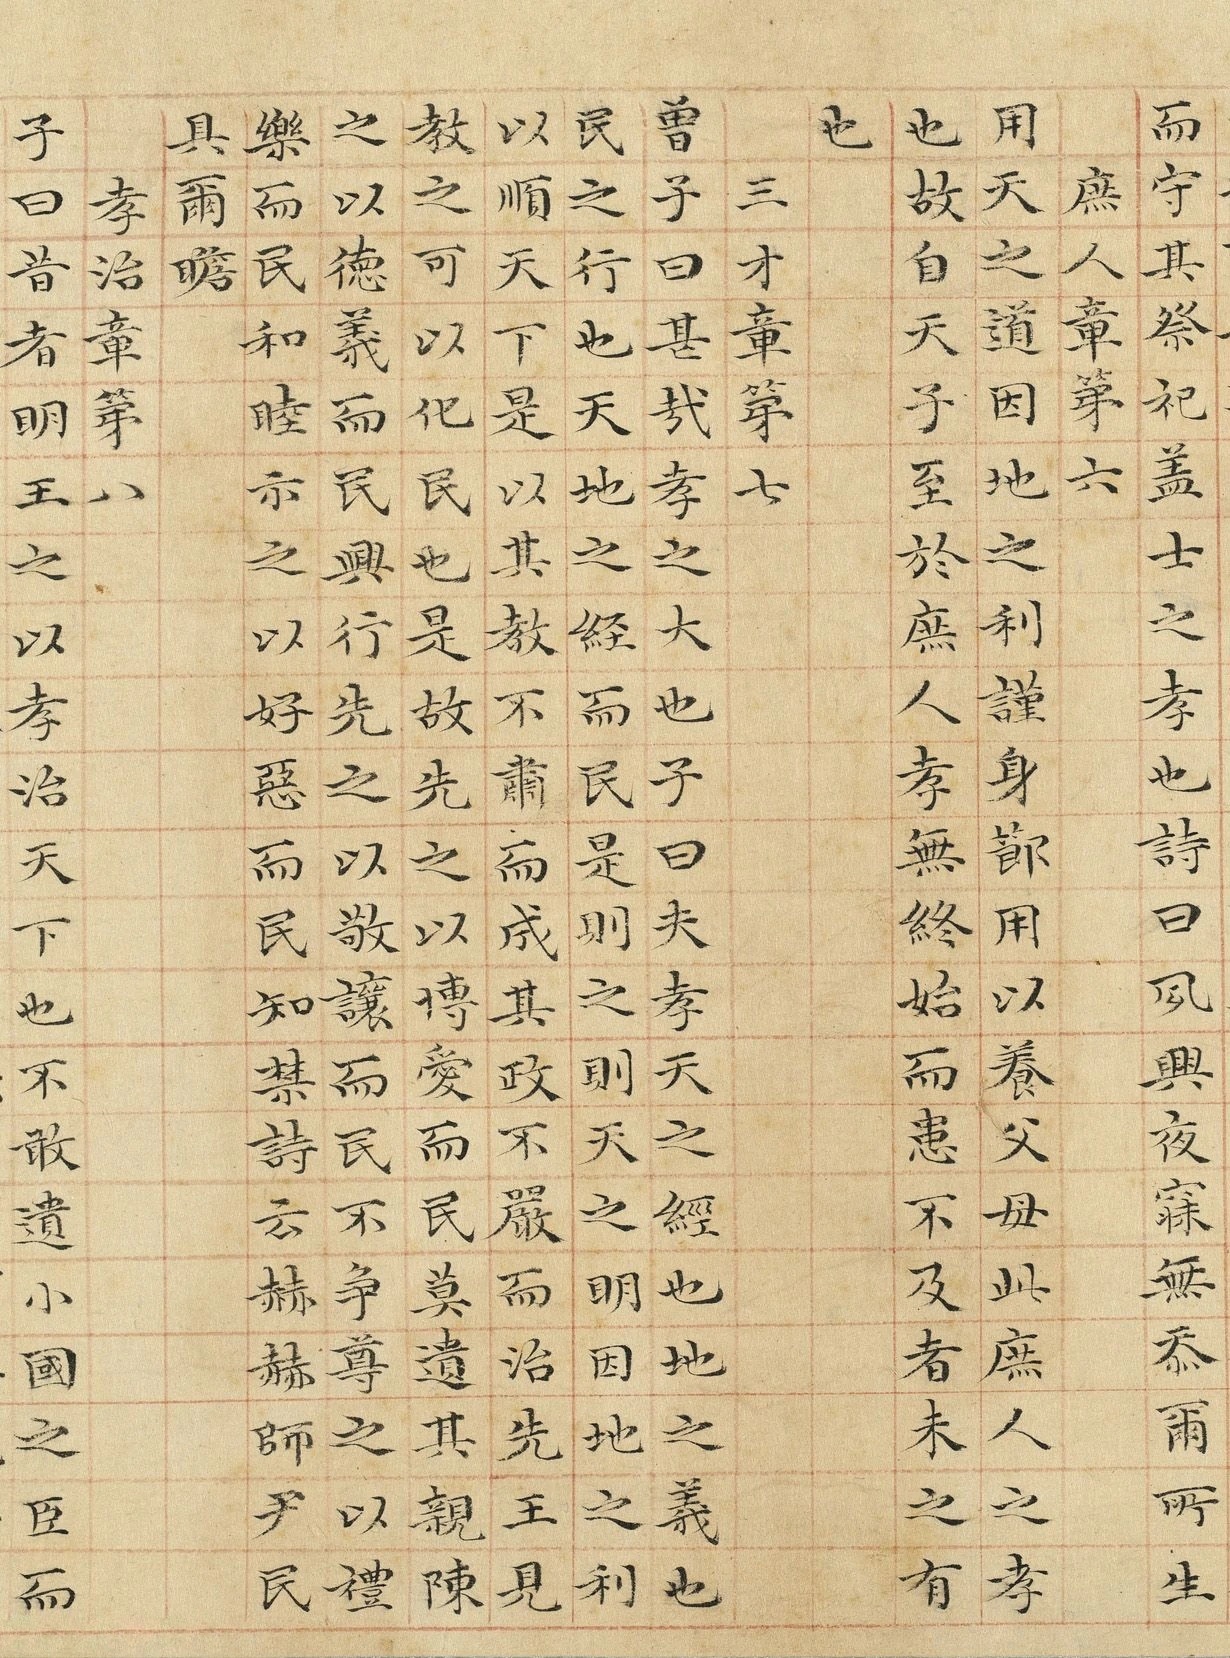 而守其祭祀盖士之孝也詩曰夙興夜寐無忝爾所生
庶人章第六
用天之道因地之利謹身節用以養父母此庶人之孝
也故自天子至於庶人孝無終始而患不及者未之有
也
三才章第七
曾子曰甚哉孝之大也子曰夫孝天之經也地之義也
民之行也天地之経而民是則之則天之明因地之利
以順天下是以其教不肅而成其政不嚴而治先王見
教之可以化民也是故先之以博愛而民莫遺其親陳
之以德義而民興行先之以敬讓而民不争尊之以禮
樂而民和睦示之以好惡而民知禁詩云赫赫師尹民
具爾瞻
孝治章第八
子曰昔者明王之以孝治天下也不敢遺小國之臣而